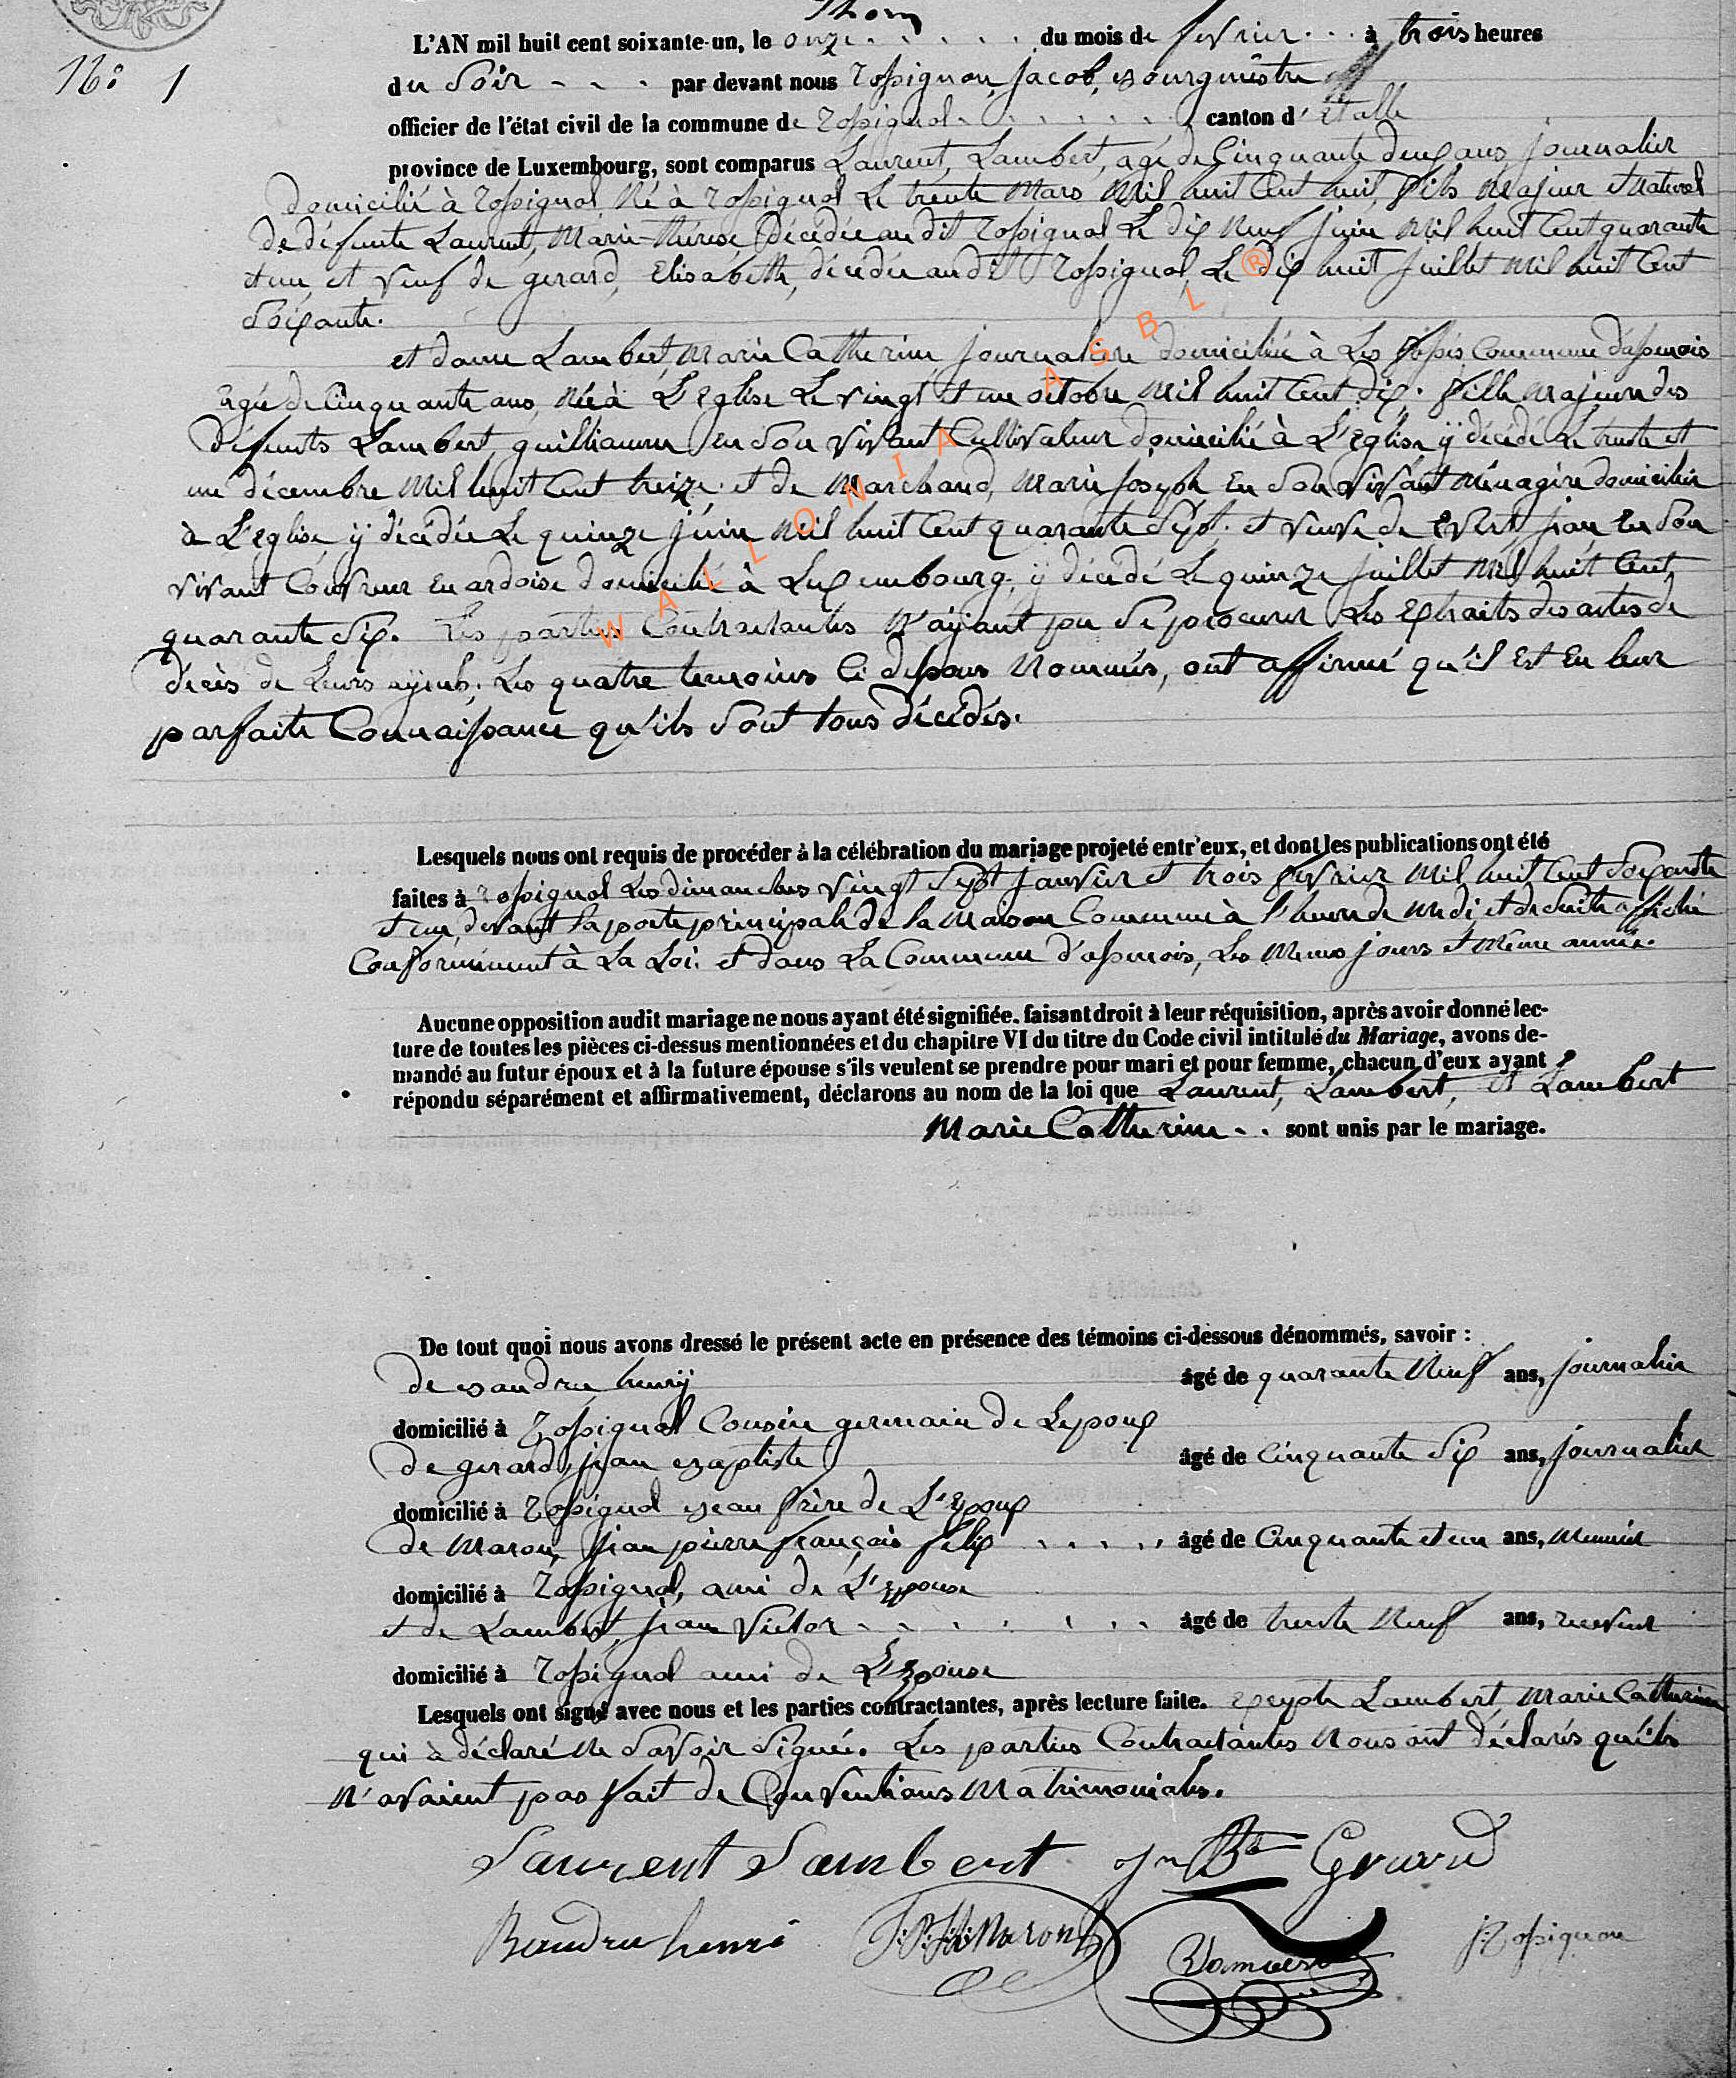 Thom
N° 1
L'AN mil huit cent soixante-un, le onze . . . . . du mois de fevrier . . . à trois heures
du Soir - - - par devant nous Rossignon, Jacob, Bourgmestre
officier de l'état civil de la commune de Rossignol . . . . . . canton d'Etalle
province de Luxembourg, sont comparus Laurent, Lambert, agé de Cinquante deux ans, journalier
domicilié à Rossignol, Né à Rossignol Le trente Mars Mil huit Cent huit, fils Majeur et Naturel
de défunte Laurent, Marie-Thérèse, décédée au dit Rossignol Le dix Neuf juin Mil huit Cent quarante
et un, et Veuf de gerard, Elisabeth, décédée au dit Rossignol, Le dix huit juillet Mil huit Cent
Soixante.
et dame Lambert, Marie Catherine journalière domiciliée à Les fossés Commune d'assenois
agée de Cinquante ans, Née à L'eglise Le vingt et un octobre Mil huit Cent dix. fille Majeure des
défunts Lambert, guilliaume En Son Vivant Cultivateur domicilié à L'Eglise ÿ décédé Le trente et
un décembre Mil huit Cent treize. et de Marchand, Marie Joseph En Son Vivant Ménagère domiciliée
à L'Eglise, ÿ décédée Le quinze juin Mil huit Cent quarante Sept. et veuve de Evert, jean En Son
vivant Couvreur en ardoise domicilié à Luxembourg, ÿ décédé Le quinze juillet Mil huit Cent
quarante Six. Les parties Contractantes N'aÿant pu Se procurer Les Extraits des actes de
décès de Leurs aÿeuls, Les quatre temoins Ci dessous Nommés, ont affirmé qu'il Est En leur
parfaite Connaissance qu'ils Sont tous décédés.
Lesquels nous ont requis de procéder à la célébration du mariage projeté entr'eux, et dont les publications ont été
faites à Rossignol Les dimanches vingt Sept Janvier et trois fevrier Mil huit Cent Soixante
et un, devant la porte principale de la Maison Commune à l'heure de Midi et de Suite affichée
Conformément à La Loi. et dans La Commune d'assenois, Les Memes jours et Même année.
Aucune opposition audit mariage ne nous ayant été signifiée. faisant droit à leur réquisition, après avoir donné lec-
ture de toutes les pièces ci-dessus mentionnées et du chapitre VI du titre du Code civil intitulé du Mariage, avons de-
mandé au futur époux et à la future épouse s'ils veulent se prendre pour mari et pour femme, chacun d'eux ayant
répondu séparément et affirmativement, déclarons au nom de la loi que Laurent, Lambert, et Lambert
Marie Catherine . . sont unis par le mariage.
De tout quoi nous avons dressé le présent acte en présence des témoins ci-dessous dénommés, savoir :
de Baudru henrÿ âgé de quarante Neuf ans, journalier
domicilié à Rossignol Cousin germain de L'epoux
de gerard, jean Baptiste âgé de Cinquante Six ans, journalier
domicilié à Rossignol Beau frère de L'Epoux
de Maron, jean pierre françois félix . . . . . âgé de Cinquante et un ans, Meunier
domicilié à Rossignol, ami de L'Epouse
et de Lambert, jean Victor . . . . . . . âgé de trente Neuf ans, receveur
domicilié à Rossignol ami de L'Epouse
Lesquels ont signé avec nous et les parties contractantes, après lecture faite. Excepté Lambert Marie Catherine
qui à déclaré Ne Savoir Signer. Les parties Contractantes Nous ont déclarés qu'ils
N'avaient pas fait de Conventions Matrimoniales.
Laurent Lambert jn Bte Gerard
Baudru henri J.P.F. Maron J. Rossignon
WALLONIA ASBL ®